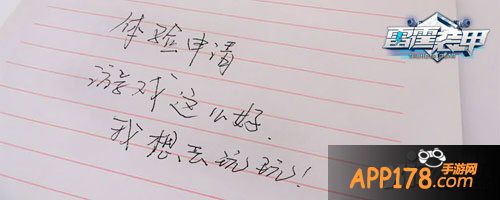 体验申请
游戏这么好.
我想去玩玩!
雷霆装甲
APP178.com
手游网